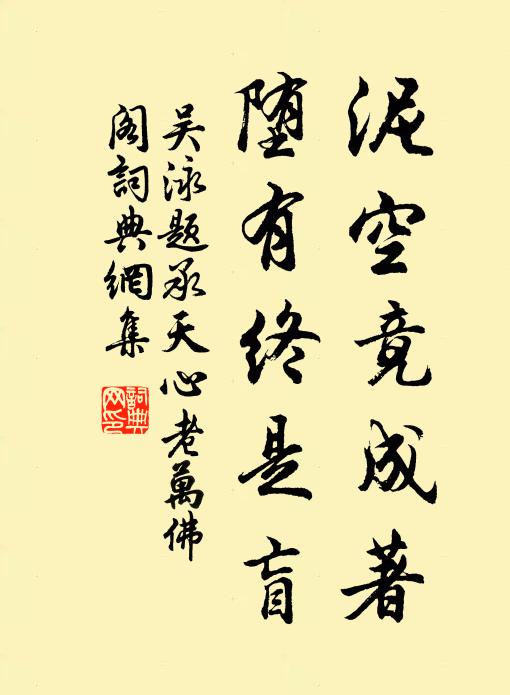 泥空竟成著
堕有终是盲
吴泳题承天心老萬佛
阁詞典網集
詞典
网印